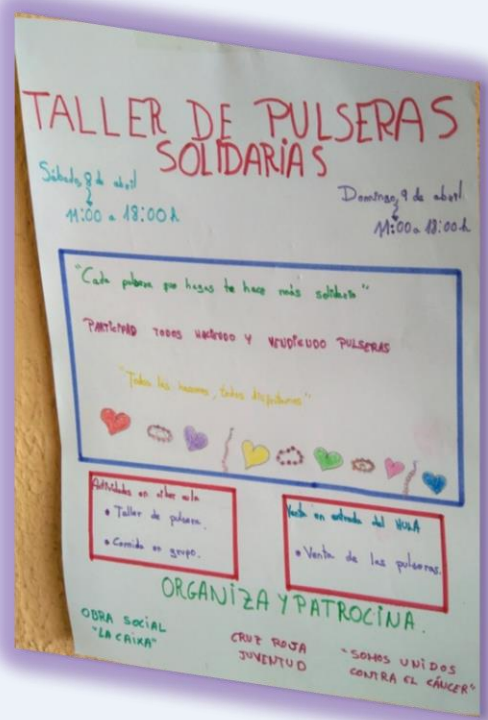 TALLER DE PULSERAS
SOLIDARIAS
Sábado, 8 de abril
11:00 a 18:00 h
Domingo, 9 de abril
11:00 a 18:00 h
"Cada pulsera que hagas te hace más solidario"
PARTICIPAD TODOS HACIENDO Y VENDIENDO PULSERAS
"Todos las hacemos, todos disfrutamos"
Actividades en aula
• Taller de pulsera.
• Comida en grupo.
Venta en entrada del HULA
• Venta de las pulseras.
ORGANIZA Y PATROCINA.
OBRA SOCIAL
"LA CAIXA"
CRUZ ROJA
JUVENTUD
"SOMOS UNIDOS
CONTRA EL CÁNCER"